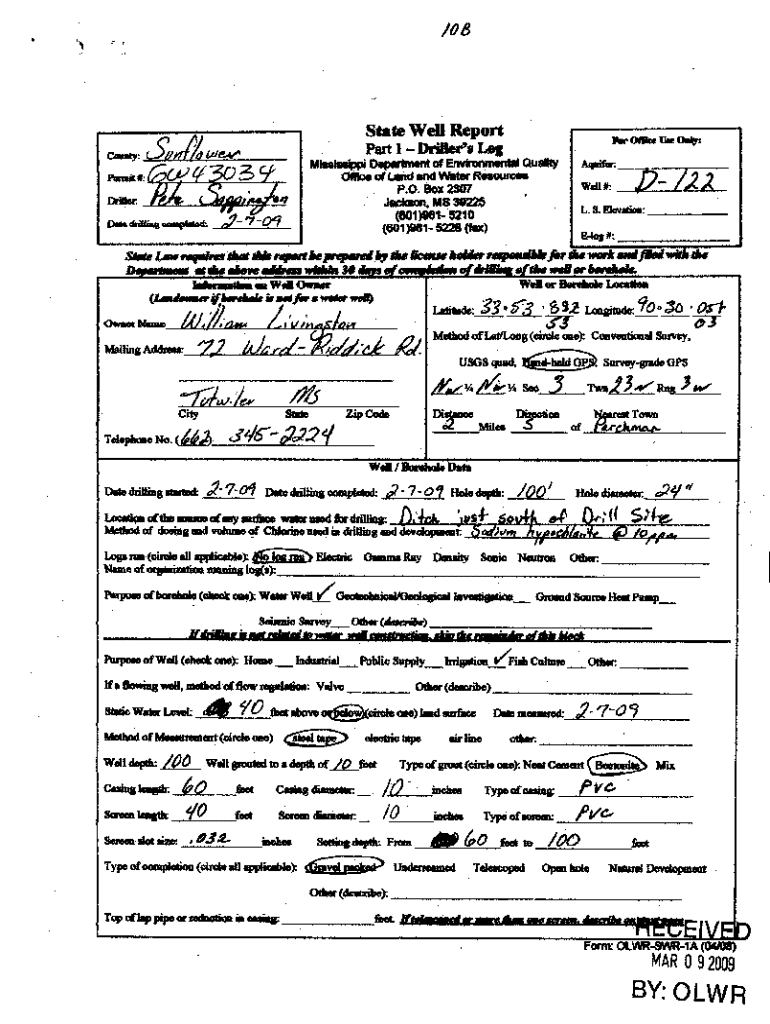 10B
State Well Report
Part 1 – Driller's Log
Mississippi Department of Environmental Quality
Office of Land and Water Resources
P.O. Box 2307
Jackson, MS 39225
(601)961- 5210
(601)961- 5228 (fax)
County: Sunflower
Permit #: GW43034
Driller: Pete Sappington
Date drilling completed: 2-7-09
For Office Use Only:
Aquifer:
Well #: D-122
L. S. Elevation:
E-log #:
State Law requires that this report be prepared by the license holder responsible for the work and filed with the
Department at the above address within 30 days of completion of drilling of the well or borehole.
Information on Well Owner
(Landowner if borehole is not for a water well)
Owner Name: William Livingston
Mailing Address: 72 Ward-Riddick Rd.
Tutwiler Ms
City State Zip Code
Telephone No. (662) 345-2224
Well or Borehole Location
Latitude: 33.53.892 Longitude: 90.30.051
53 03
Method of Lat/Long (circle one): Conventional Survey,
USGS quad, Hand-held GPS, Survey-grade GPS
NW ¼ NW ¼ Sec 3 Twn 23N Rng 3W
Distance Direction Nearest Town
2 Miles S of Parchman
Well / Borehole Data
Date drilling started: 2-7-09 Date drilling completed: 2-7-09 Hole depth: 100' Hole diameter: 24"
Location of the source of any surface water used for drilling: Ditch just south of Drill Site
Method of dosing and volume of Chlorine used in drilling and development: Sodium hypochlorite @ 10ppm
Logs run (circle all applicable): No log run Electric Gamma Ray Density Sonic Neutron Other:
Name of organization running log(s):
Purpose of borehole (check one): Water Well ✓ Geotechnical/Geological investigation Ground Source Heat Pump
Seismic Survey Other (describe)
If drilling is not related to water well construction, skip the remainder of this block
Purpose of Well (check one): Home Industrial Public Supply Irrigation ✓ Fish Culture Other:
If a flowing well, method of flow regulation: Valve Other (describe)
Static Water Level: 40 feet above or below (circle one) land surface Date measured: 2-7-09
Method of Measurement (circle one) steel tape electric tape air line other:
Well depth: 100 Well grouted to a depth of 10 feet Type of grout (circle one): Neat Cement Bentonite Mix
Casing length: 60 feet Casing diameter: 10 inches Type of casing: PVC
Screen length: 40 feet Screen diameter: 10 inches Type of screen: PVC
Screen slot size: .032 inches Setting depth: From 60 feet to 100 feet
Type of completion (circle all applicable): Gravel packed Underreamed Telescoped Open hole Natural Development
Other (describe):
Top of lap pipe or reduction in casing: feet. If telescoped or more than one screen, describe on
RECEIVED
Form: OLWR-SWR-1A (04/08)
MAR 09 2009
BY: OLWR